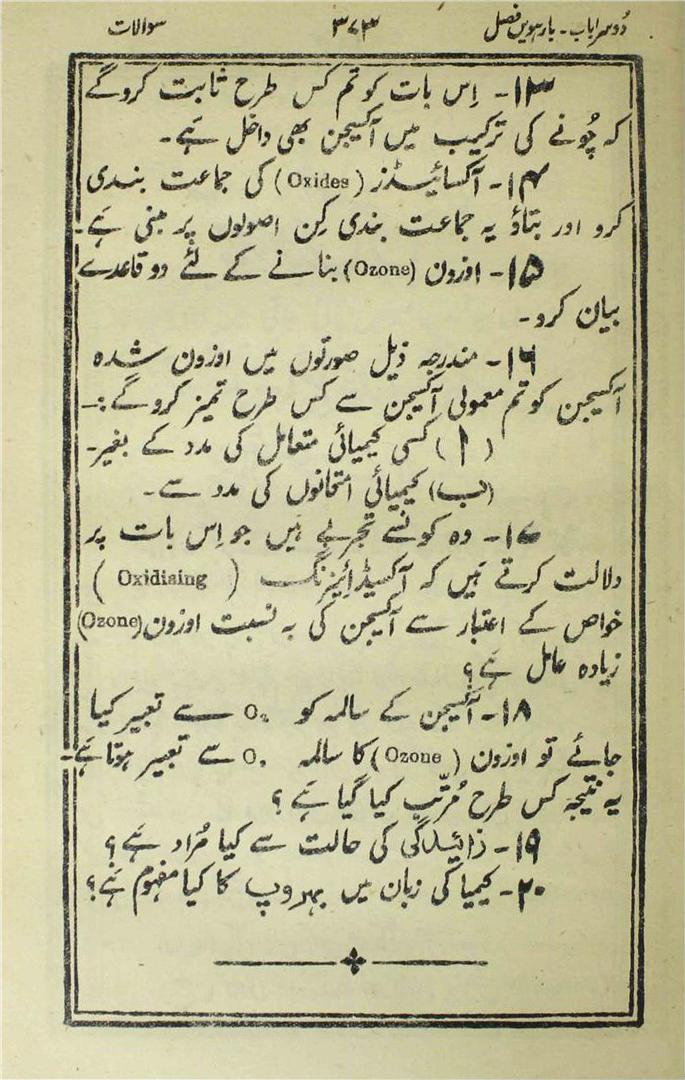 دُوسرا باب۔ بارہویں فصل ۳۷۳ سوالات
۱۳۔ اِس بات کو تم کس طرح ثابت کرو گے
کہ چُونے کی ترکیب میں آکسیجن بھی داخل ہَے۔
۱۴۔ آکسائیڈز (Oxides) کی جماعت بندی
کرو اور بتاؤ یہ جماعت بندی کِن اصولوں پر مبنی ہَے۔
۱۵۔ اوزون (Ozone) بنانے کے لئے دو قاعدے
بیان کرو۔
۱۶۔ مندرجہ ذیل صورتوں میں اوزون شدہ
آکسیجن کو تم معمولی آکسیجن سے کس طرح تمیز کرو گے:۔
(ا) کسی کیمیائی متعامل کی مدد کے بغیر۔
(ب) کیمیائی امتحانوں کی مدد سے۔
۱۷۔ وہ کونسے تجربے ہَیں جو اِس بات پر
دلالت کرتے ہَیں کہ آکسیڈائیزنگ ( Oxidising )
خواص کے اعتبار سے آکسیجن کی بہ نسبت اوزون (Ozone)
زیادہ عامل ہَے؟
۱۸۔ آکسیجن کے سالمہ کو O سے تعبیر کیا
جائے تو اوزون ( Ozone ) کا سالمہ O سے تعبیر ہوتا ہَے۔
یہ نتیجہ کس طرح مُرتّب کیا گیا ہَے؟
۱۹۔ زائیدگی کی حالت سے کیا مُراد ہَے؟
۲۰۔ کیمیا کی زبان میں بہروپ کا کیا مفہوم ہَے؟